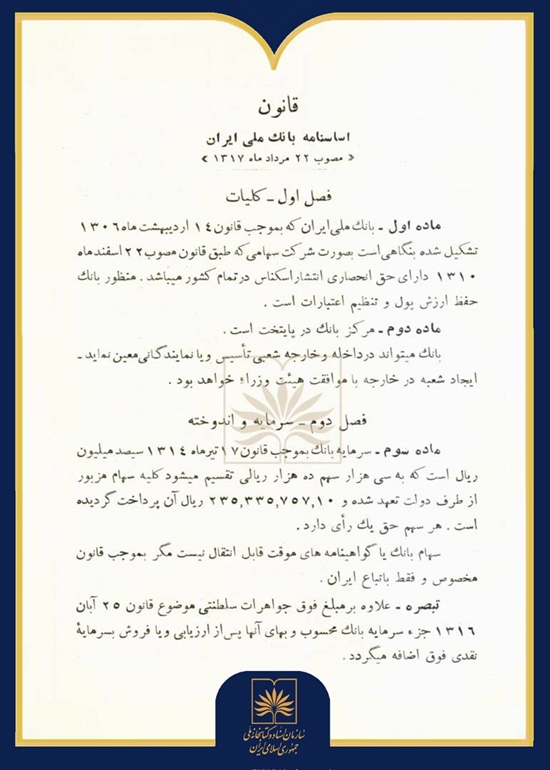 قانون
اساسنامه بانك ملی ایران
« مصوب ۲۲ مرداد ماه ۱۳۱۷ »
فصل اول ـ كلیات
ماده اول ـ بانك ملی ایران كه بموجب قانون ۱۴ اردیبهشت ماه ۱۳۰۶
تشكیل شده بنگاهی است بصورت شركت سهامی كه طبق قانون مصوب ۲۲ اسفند ماه
۱۳۱۰ دارای حق انحصاری انتشار اسكناس در تمام كشور میباشد . منظور بانك
حفظ ارزش پول و تنظیم اعتبارات است .
ماده دوم ـ مركز بانك در پایتخت است .
بانك میتواند در داخله و خارجه شعبی تأسیس و یا نمایندگانی معین نماید ـ
ایجاد شعبه در خارجه با موافقت هیئت وزراء خواهد بود .
فصل دوم ـ سرمایه و اندوخته
ماده سوم ـ سرمایه بانك بموجب قانون ۱۷ تیر ماه ۱۳۱۴ سیصد میلیون
ریال است كه به سی هزار سهم ده هزار ریالی تقسیم میشود كلیه سهام مزبور
از طرف دولت تعهد شده و ۲۳۵,۳۳۵,۷۵۷,۱۰ ریال آن پرداخت گردیده
است . هر سهم حق یك رأی دارد .
سهام بانك یا گواهینامه های موقت قابل انتقال نیست مگر بموجب قانون
مخصوص و فقط باتباع ایران .
تبصره ـ علاوه بر مبلغ فوق جواهرات سلطنتی موضوع قانون ۲۵ آبان
۱۳۱۶ جزء سرمایه بانك محسوب و بهای آنها پس از ارزیابی و یا فروش بسرمایهٔ
نقدی فوق اضافه میگردد .
سازمان اسناد و كتابخانه ملی
جمهوری اسلامی ایران